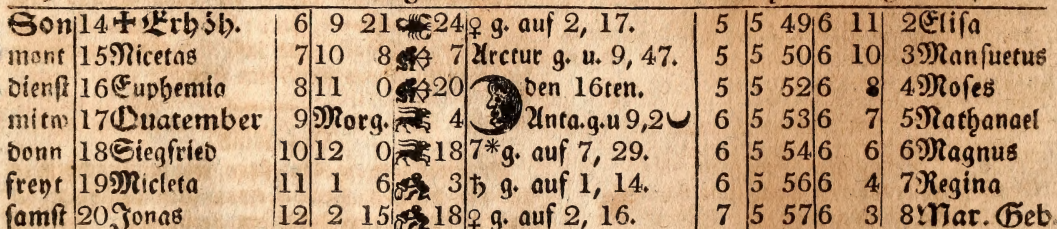 Son 14 ✝ Erhöh. 6 9 21 24 ♀ g. auf 2, 17. 5 5 49 6 11 2 Elisa
mont 15 Nicetas 7 10 8 7 Arctur g. u. 9, 47. 5 5 50 6 10 3 Mansuetus
dienst 16 Euphemia 8 11 0 20 den 16ten. 5 5 52 6 8 4 Moses
mitw 17 Quatember 9 Morg. 4 Anta.g.u 9,2 6 5 53 6 7 5 Nathanael
donn 18 Siegfried 10 12 0 18 7* g. auf 7, 29. 6 5 54 6 6 6 Magnus
freyt 19 Micleta 11 1 6 3 ♄ g. auf 1, 14. 6 5 56 6 4 7 Regina
samst 20 Jonas 12 2 15 18 ♀ g. auf 2, 16. 7 5 57 6 3 8 Mar. Geb